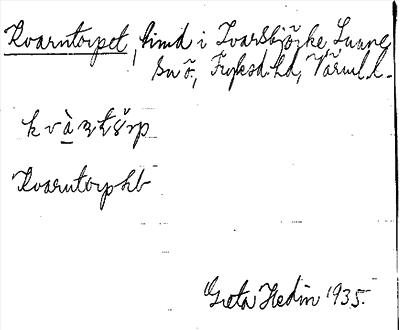 Kvarntorpet, hmd i Ivarsbjörke, Sunne
sn ö, Fryksd. hd, Värml. l.
Kvarntorp hb
Greta Hedin 1935.